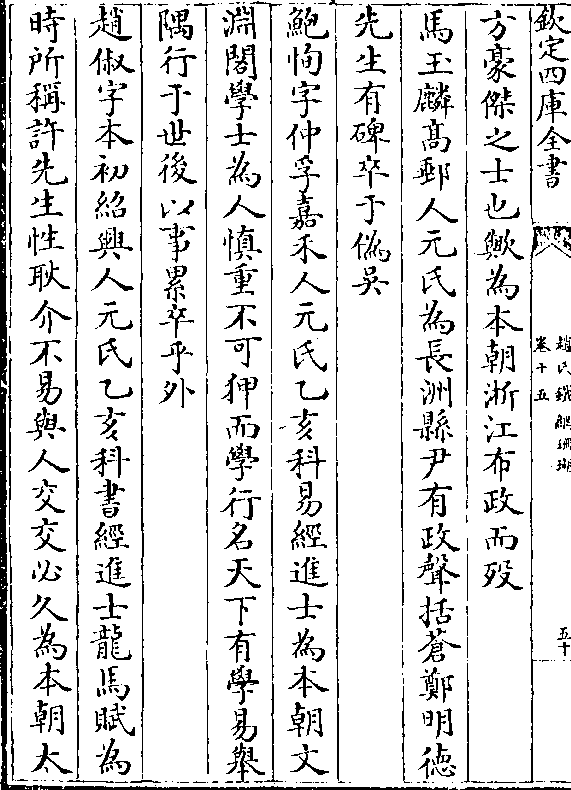 欽定四庫全書
趙氏鐵網珊瑚
卷十五
五十
方豪傑之士也歟為本朝浙江布政而殁
馬玉麟高郵人元氏為長洲縣尹有政聲括蒼鄭明徳
先生有碑卒于偽吳
鮑恂字仲孚嘉禾人元氏乙亥科易經進士為本朝文
淵閣學士為人慎重不可狎而學行名天下有學易舉
隅行于世後以事累卒乎外
趙俶字本初紹興人元氏乙亥科書經進士龍馬賦為
時所稱許先生性耿介不易與人交交必久為本朝太